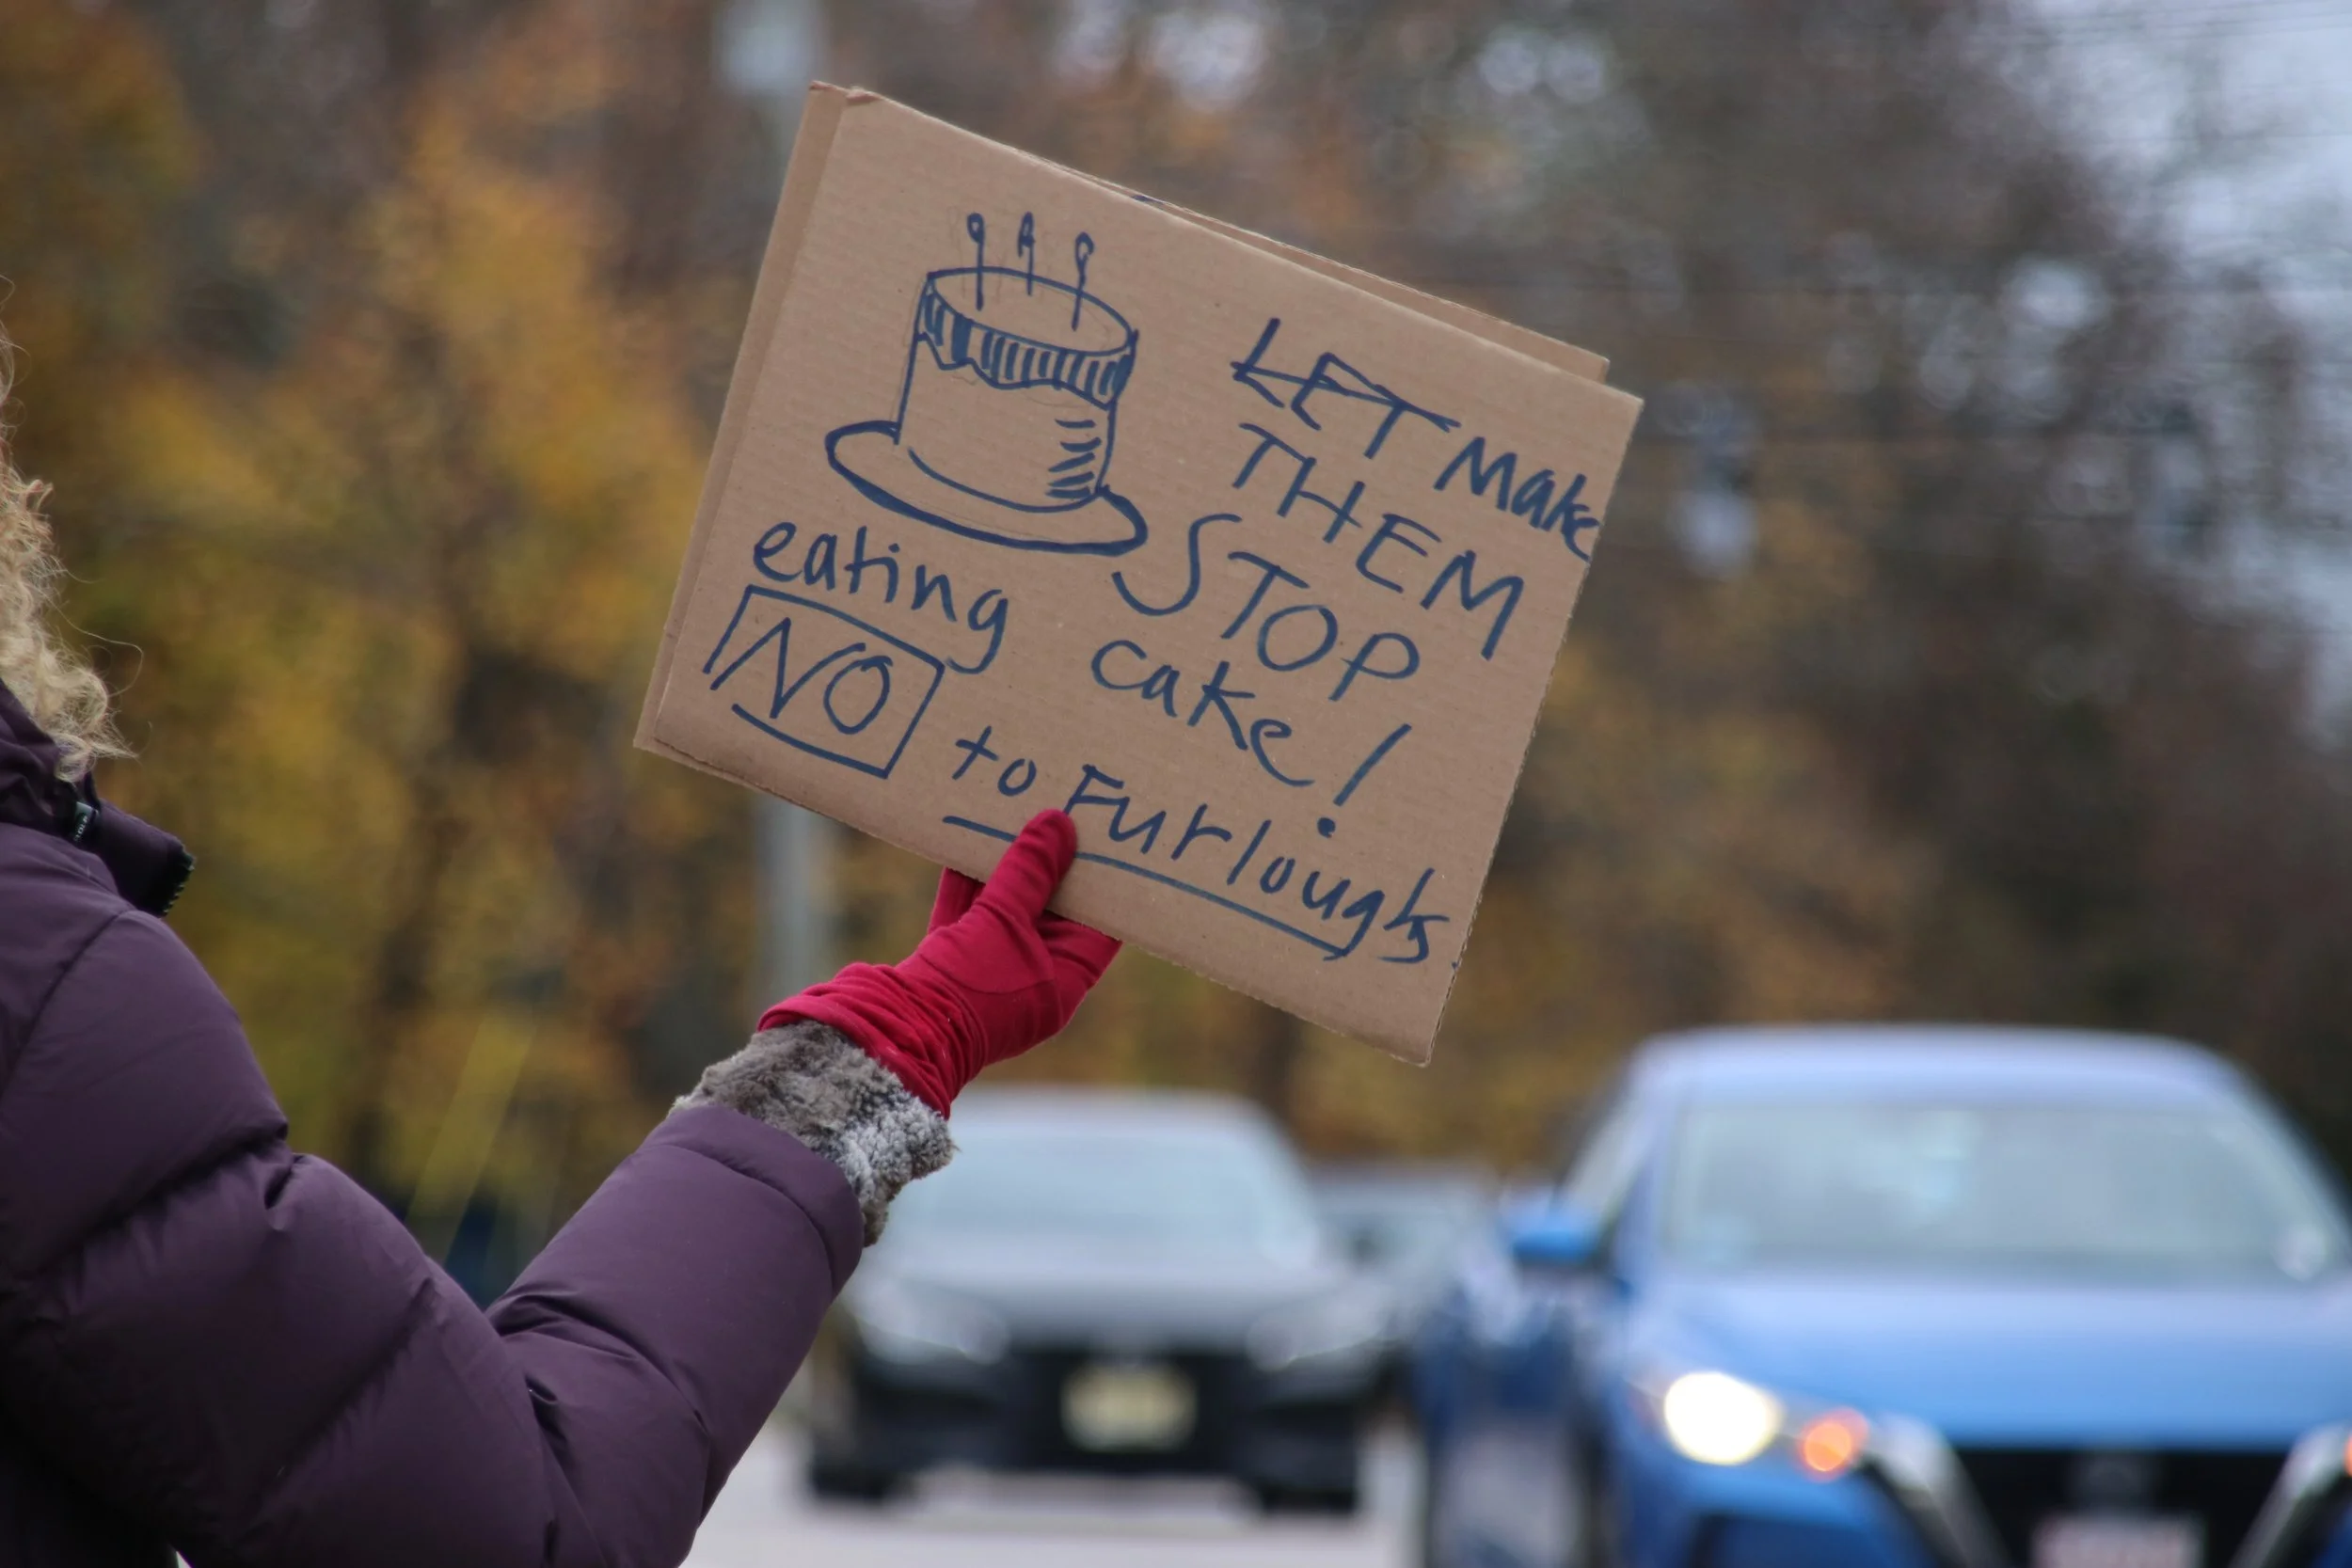 LET Make
THEM
STOP
eating cake!
NO to Furloughs